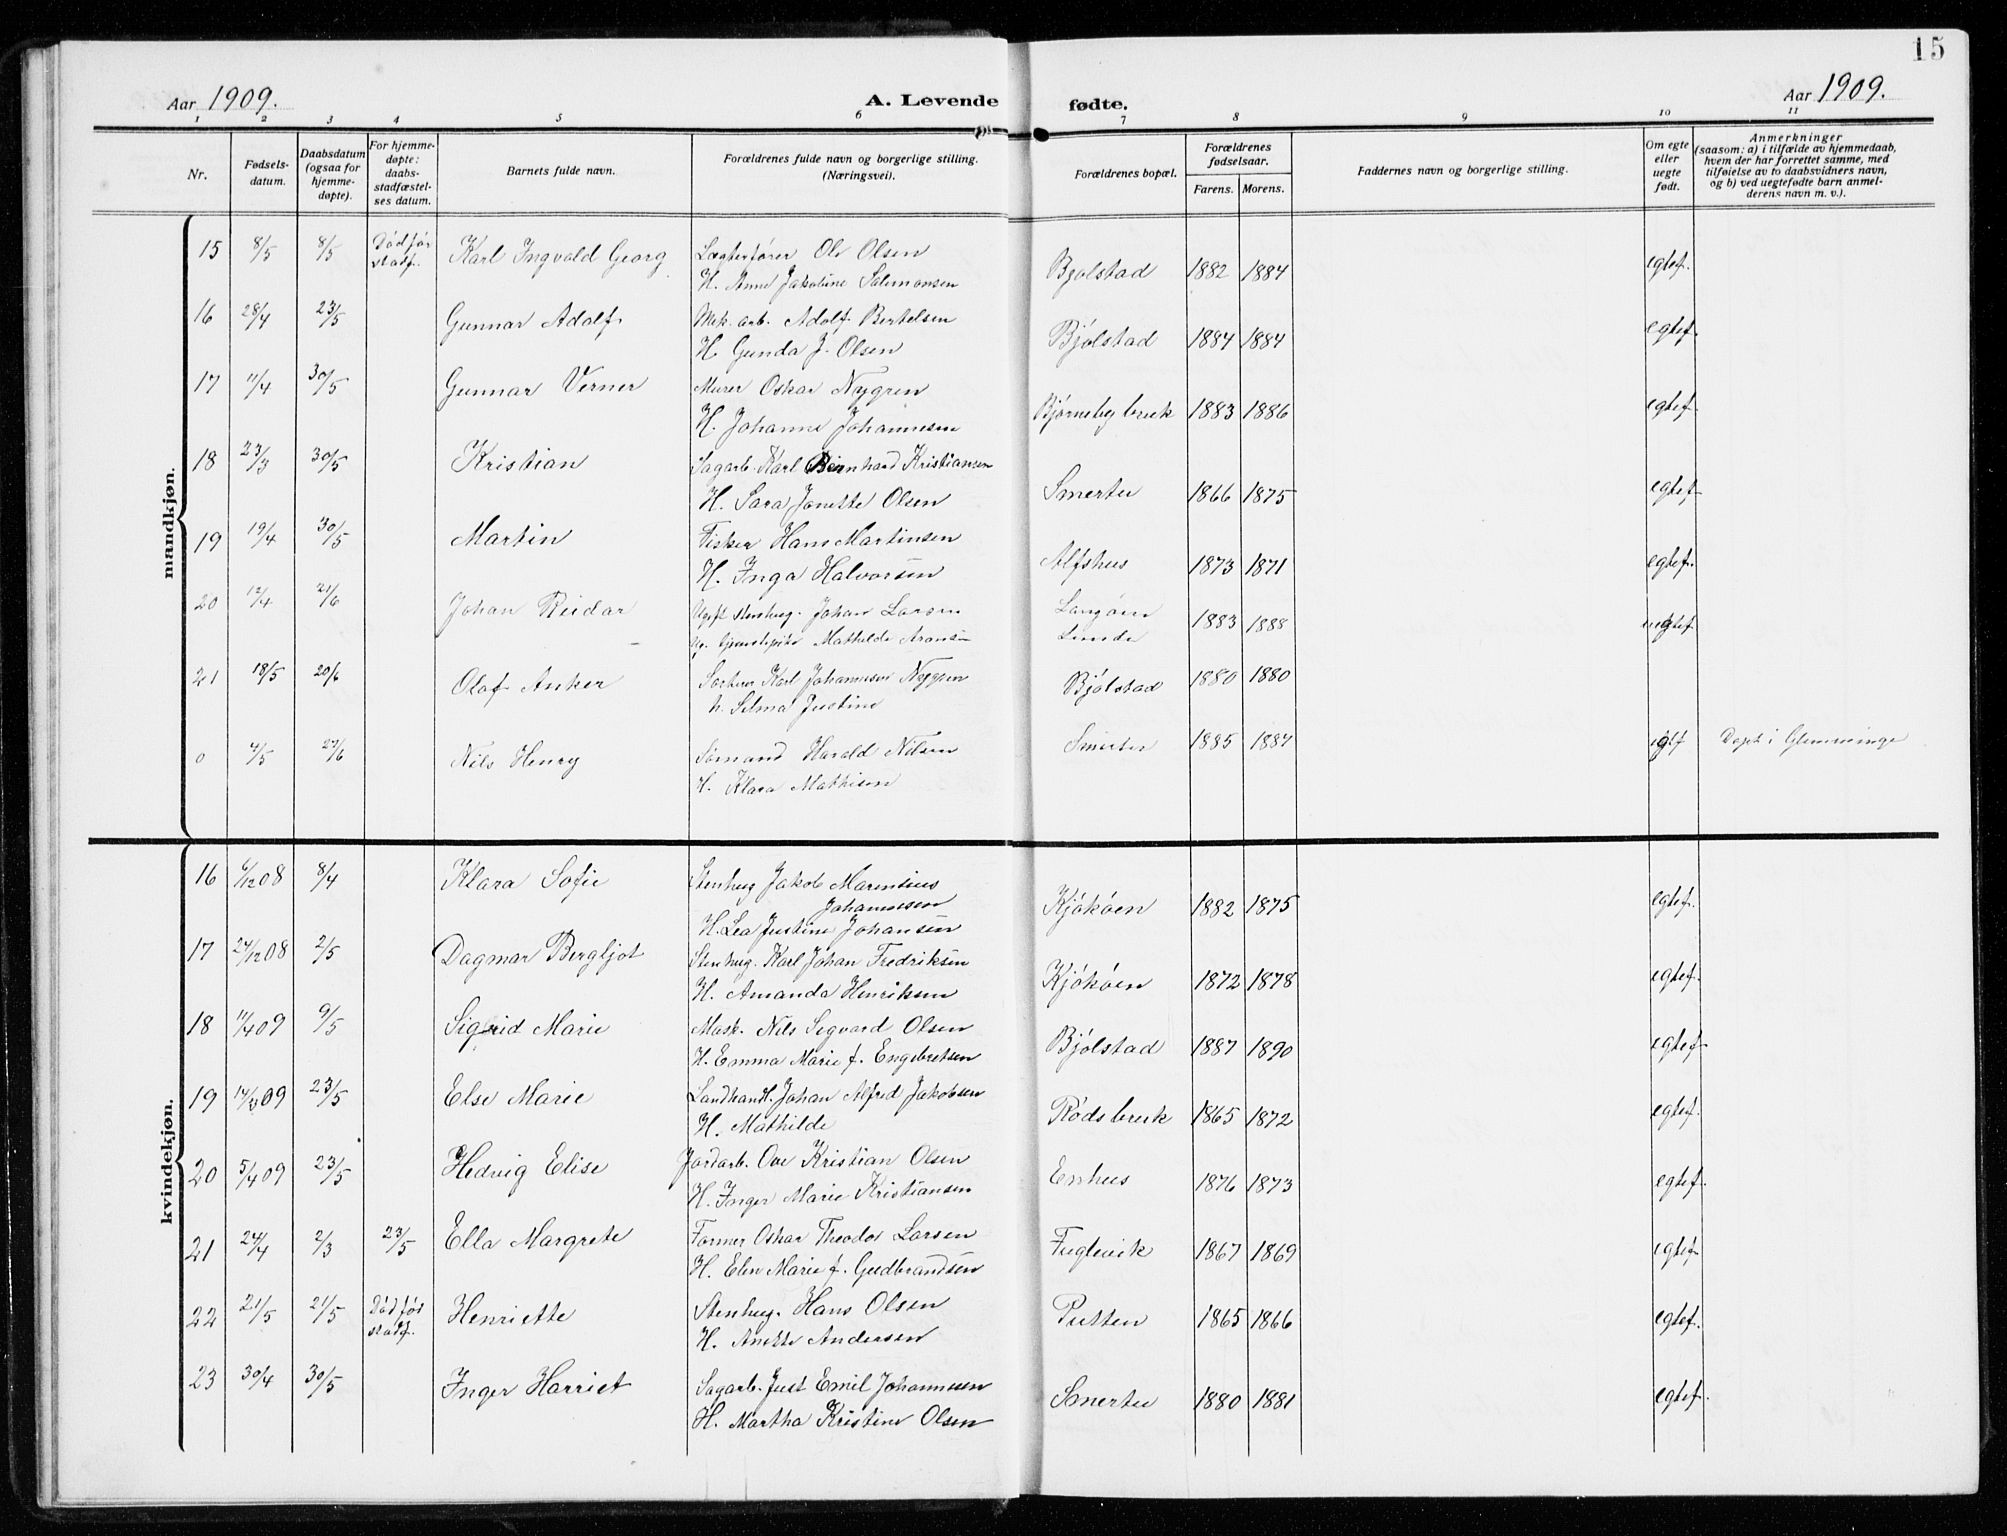 15
Aar 1909.
A. Levende fødte.
Aar 1909.
1 2 3 4 5 6 7 8 9 10 11
Nr.
Fødsels-
datum.
Daabsdatum
(ogsaa for
hjemme-
døpte).
For hjemme-
døpte:
daabs-
stadfæstel-
ses datum.
Barnets fulde navn.
Forældrenes fulde navn og borgerlige stilling.
(Næringsvei).
Forældrenes bopæl.
Forældrenes
fødselsaar.
Farens. Morens.
Faddernes navn og borgerlige stilling.
Om egte
eller
uegte
født.
Anmerkninger
(saasom: a) i tilfælde av hjemmedaab,
hvem der har forrettet samme, med
tilføielse av to daabsvidners navn,
og b) ved uegtefødte barn anmel-
derens navn m. v.).
mandkjøn.
15 8/5 8/5 Død før Karl Ingvald Georg Lægterfører Ole Olsen Bjølstad 1882 1884 egtef.
stadf. H. Anne Jakobine Salomonsen
16 28/4 23/5 Gunnar Adolf Mek. arb. Adolf Bertelsen Bjølstad 1884 1884 egtef.
H Gunda J. Olsen
17 11/4 30/5 Gunnar Verner Murer Oskar Nygren Bjørneby bruk 1883 1886 egtef.
H. Johanne Johannesen
18 23/3 30/5 Kristian Sagarb. Karl Bernhard Kristiansen Smertu 1866 1875 egtef
H. Sara Jonette Olsen
19 19/4 30/5 Martin Fisker Hans Martinsen Alfshus 1873 1871 egtef.
H. Inga Halvorsen
20 12/4 21/6 Johan Reidar Ugift Stenhug. Johan Larsen Langøen 1883 1888 uegtef
Ug. tjenestepike Mathilde Aronsen Lunde
21 18/5 20/6 Olaf Anker Karl Johannesen Nygren Bjølstad 1880 1880 egtef
h. Selma Justine
0 4/5 27/6 Nils Henry Sømand Harald Nilsen Smertu 1885 1887 egtf Døpt i Glemminge
H. Klara Mathisen
kvindekjøn.
16 6/12 08 8/4 Klara Sofie Stenhug Jakob Marensius Kjøkøen 1882 1875 egtef.
Johannesen
H. Lea Justine Johansen
17 27/12 08 2/5 Dagmar Bergljot Stenhug. Karl Johan Fredriksen Kjøkøen 1872 1878 egtef.
H. Amanda Henriksen
18 11/4 09 9/5 Sigrid Marie Mask. Nils Segvard Olsen Bjølstad 1887 1890 egtef
H. Emma Marie f. Engebretsen
19 14/3 09 23/5 Else Marie Landhandl. Johan Alfred Jakobsen Rødsbruk 1865 1872 egtef.
H. Mathilde
20 5/4 09 23/5 Hedvig Elise Jordarb. Ove Kristian Olsen Enhus 1876 1873 egtef.
H. Inger Marie Kristiansen
21 24/4 2/3 23/5 Ella Margrete Former Oskar Theodor Larsen Fuglevik 1867 1869 egtef
H. Elen Marie f. Gudbrandsen
22 21/5 21/5 Død før Henriette Stenhug. Hans Olsen Putten 1865 1866 egtef.
stadf. H. Anette Andersen
23 30/4 30/5 Inger Harriet Sagarb. Just Emil Johannesen Smertu 1880 1881 egtef.
H. Martha Kristine Olsen